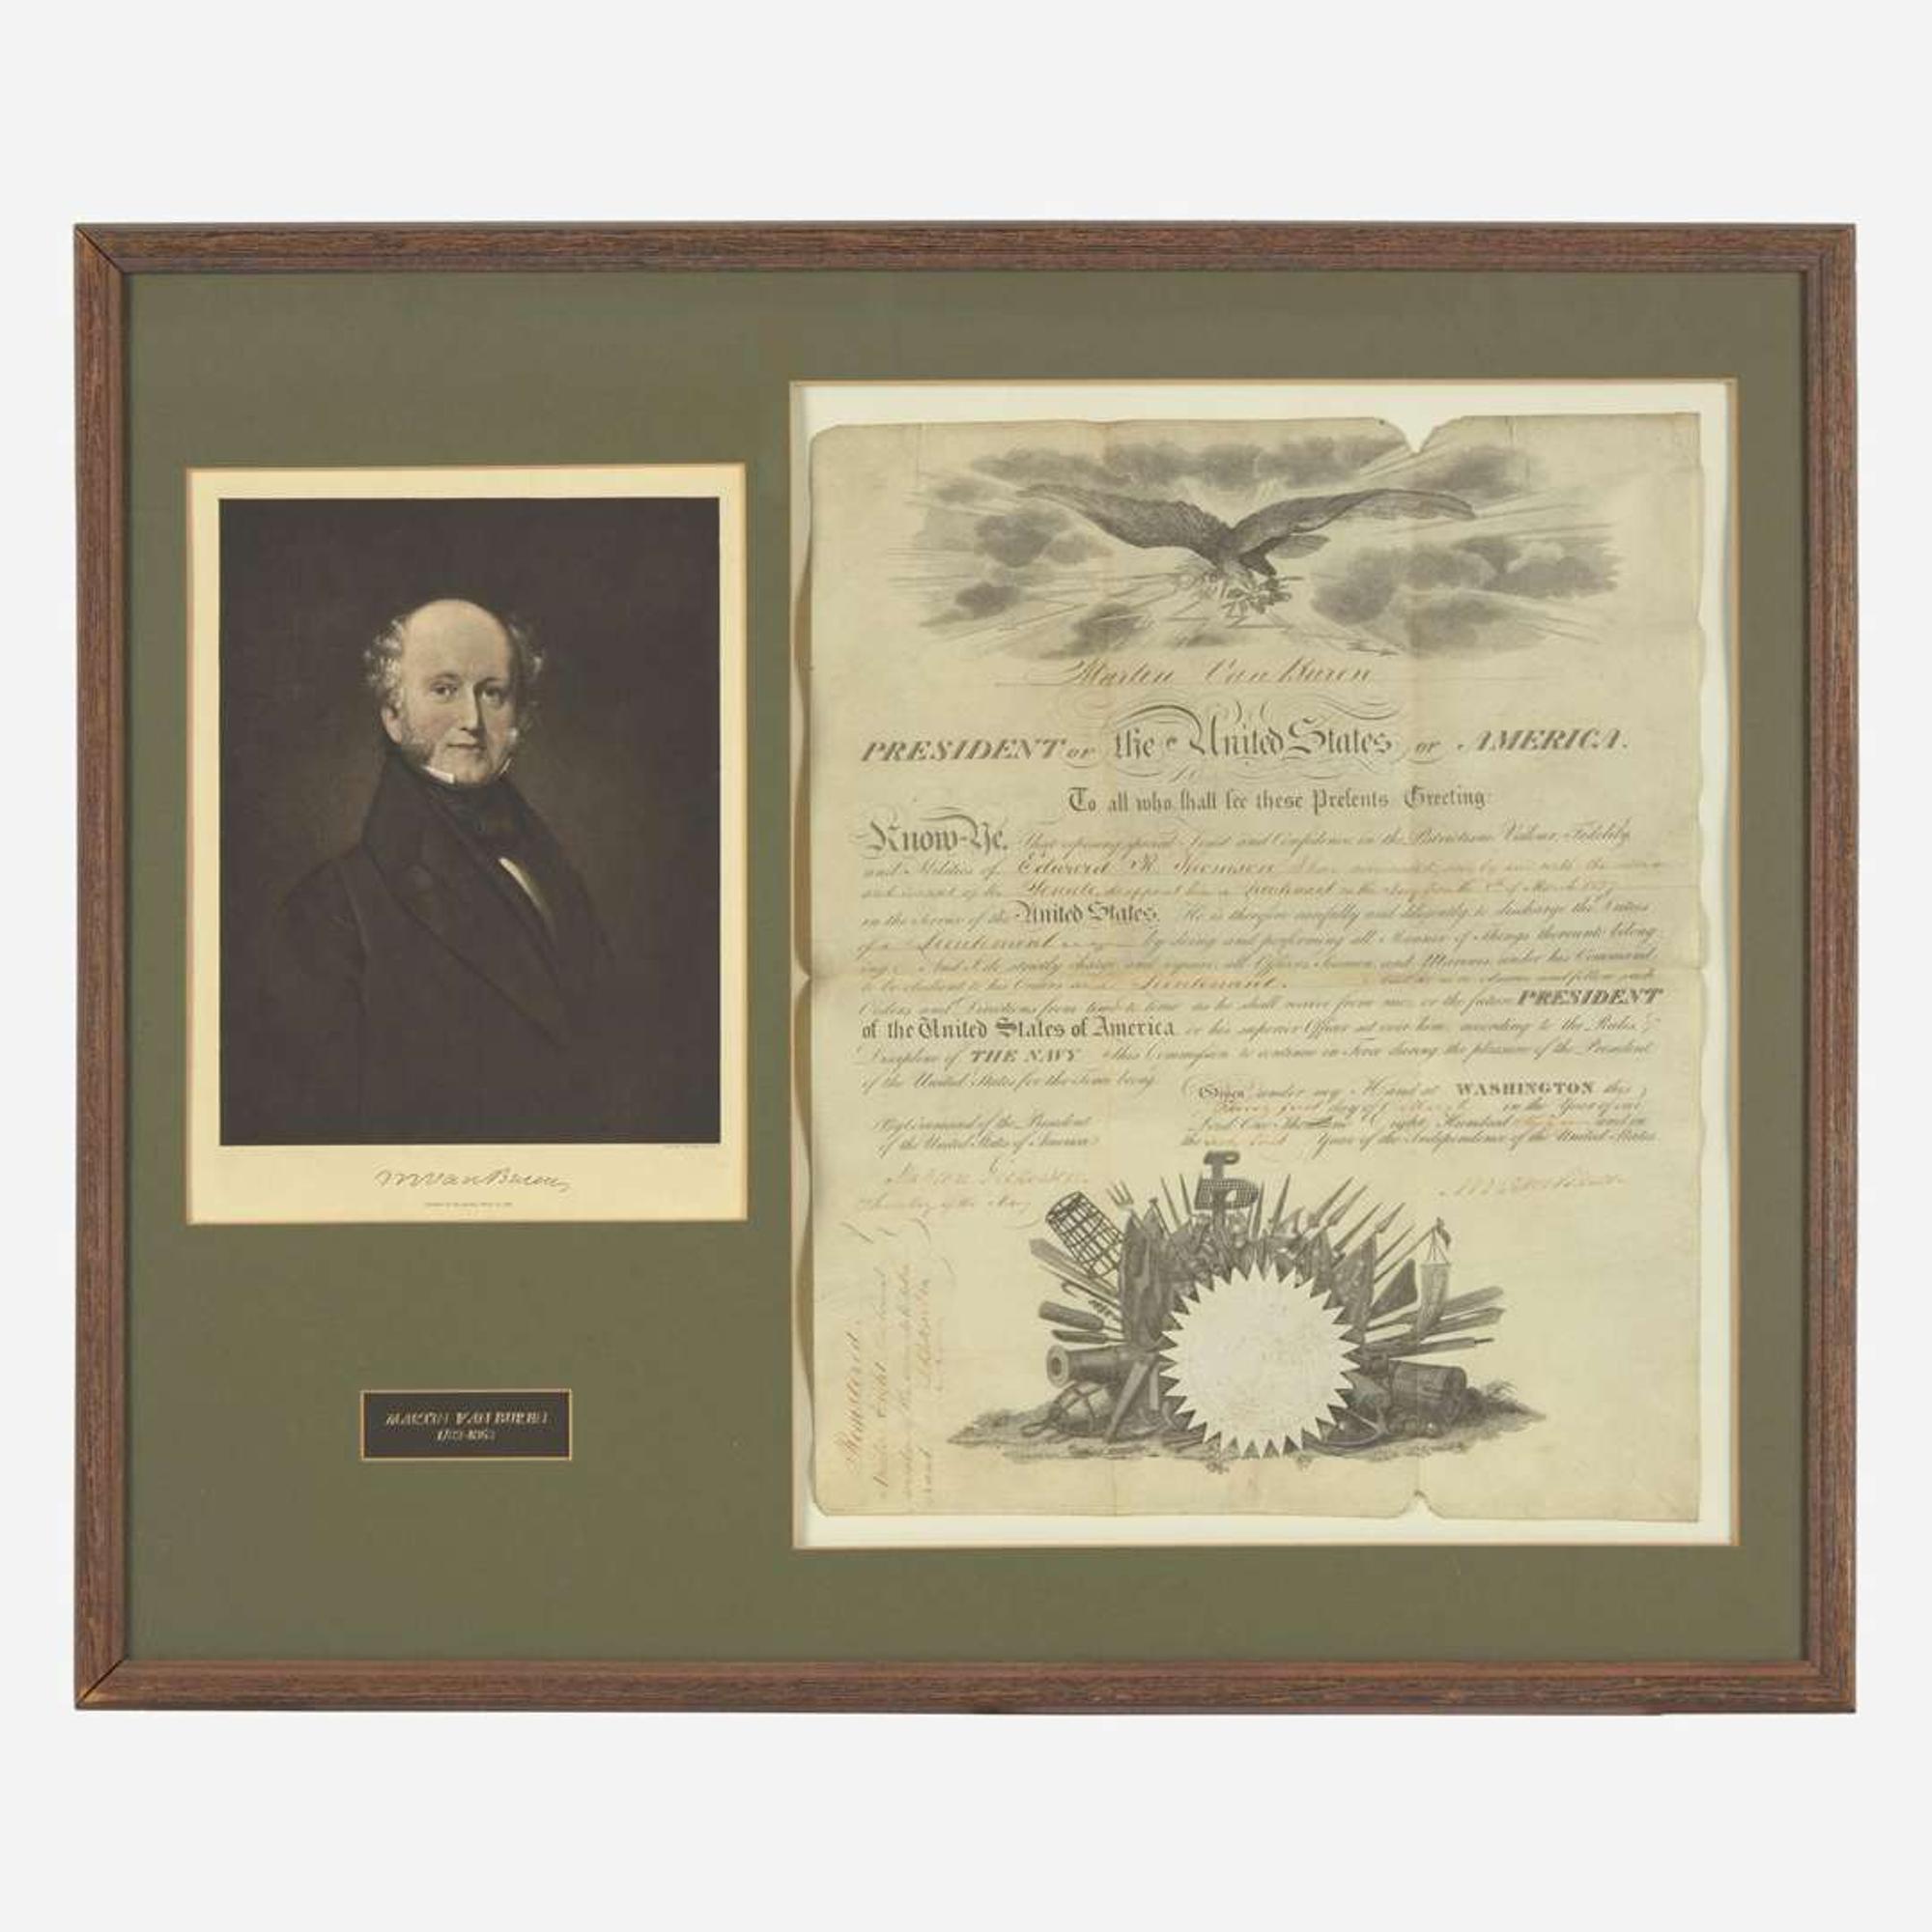 MVanBuren
MARTIN VAN BUREN
Martin Van Buren
PRESIDENT OF the United States OF AMERICA.
To all who shall see these Presents Greeting:
Know-Ye, That reposing special Trust and Confidence in the Patriotism, Valour, Fidelity,
and Abilities of Edward R. Thomson I have nominated, and by and with the advice
and consent of the Senate, do appoint him a Lieutenant in the Navy from the of March 1837
in the Service of the United States. He is therefore carefully and diligently to discharge the Duties
of a Lieutenant by doing and performing all Manner of Things thereunto belong-
ing. And I do strictly charge and require all Officers Seamen and Marines under his Command,
to be obedient to his Orders as a Lieutenant. And he is to observe and follow such
Orders and Directions from time to time as he shall receive from me, or the future PRESIDENT
of the United States of America or his superior Officer set over him, according to the Rules &
Discipline of THE NAVY This Commission to continue in Force during the pleasure of the President
of the United States for the Time being.
Given under my Hand at WASHINGTON this
day of March in the Year of our
Lord One Thousand Eight Hundred and in
the Year of the Independence of the United States
By Command of the President
of the United States of America
Secretary of the Navy
M Van Buren
Registered